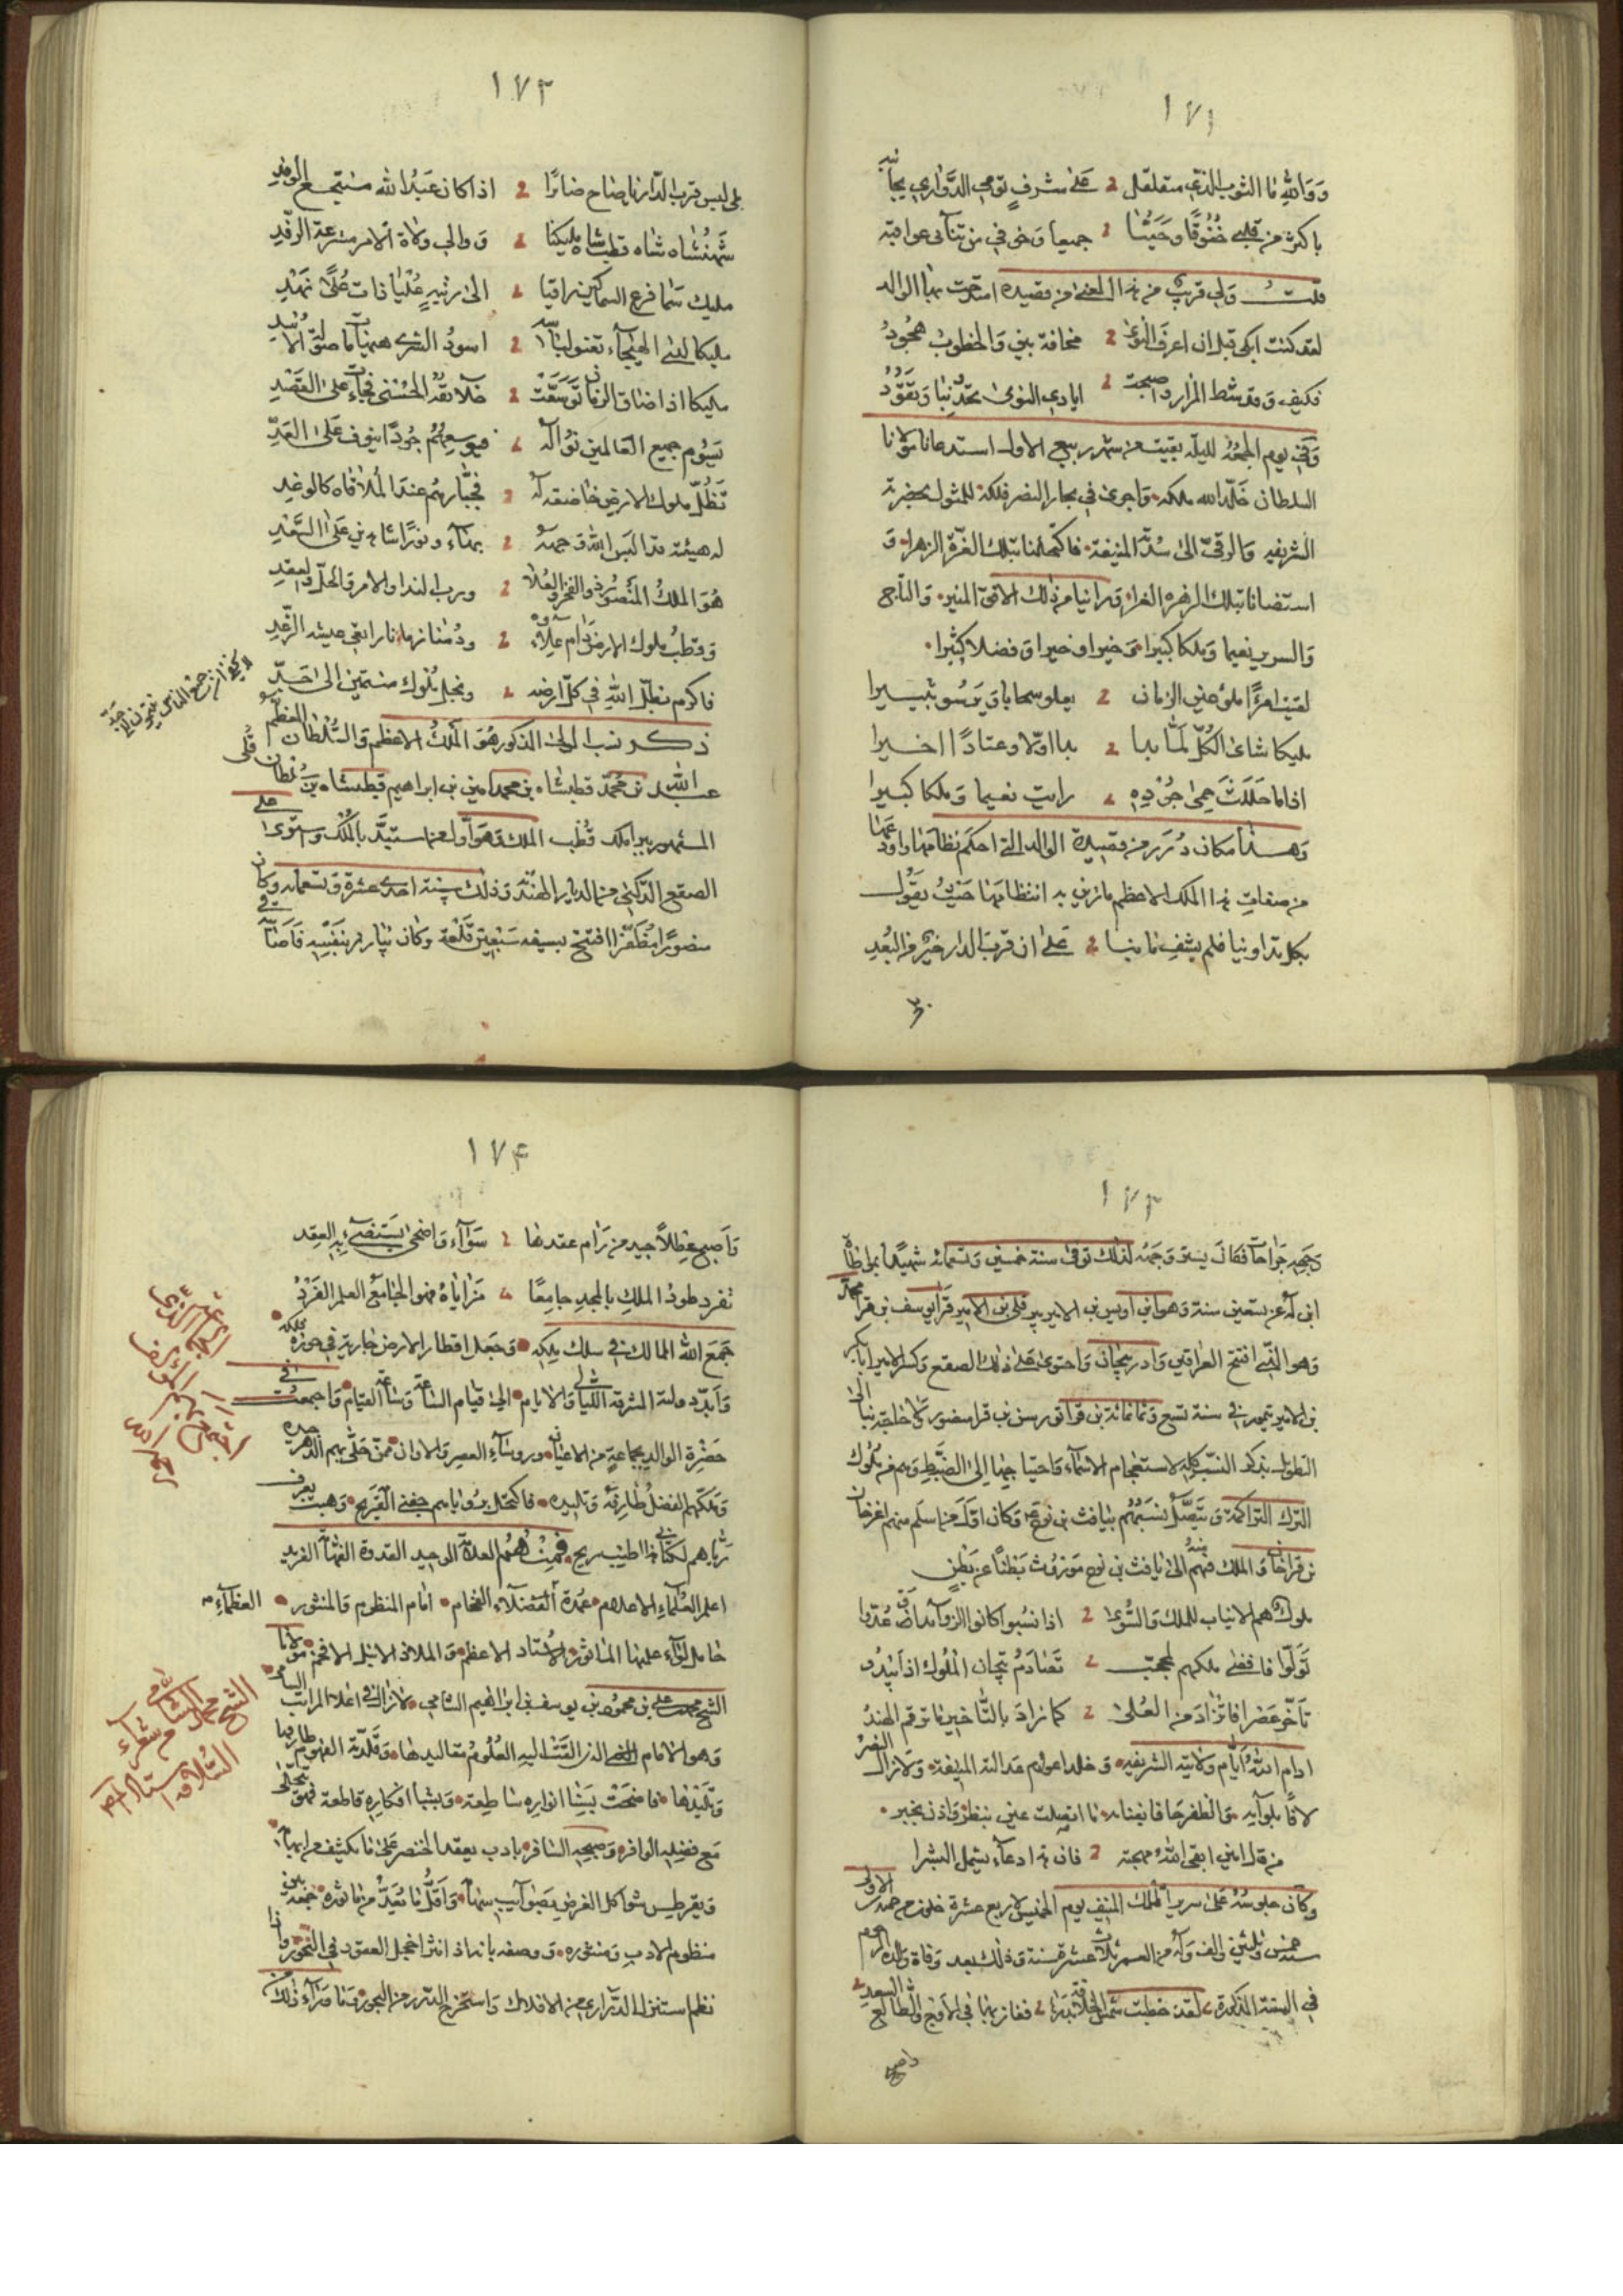 ١٧١
ووالله ما الثوب الذي متقلقل على شرف توحي الدواري بجانبه
باكثر من قلبي خفوقا وحيثما جميعا وخوفي من تنآئى عواقبه
قلت ولي قريب من هذا المعنى من قصيدة امتدحت بها الوالد
لقد كنت ابكي قبل ان اعرف النوى مخافة بيني والخطوب هجود
فكيف وقد شط المزار واصبحت ايادي النوى تحدو بنا وتقود
وفي يوم الجمعة لليلة بقيت من شهر ربيع الاول استدعانا مولانا
السلطان خلد الله ملكه واجرى في بحار النصر فلكه للمثول بحضرته
الشريفه والوقوف الى سدته المنيفة فاكتحلنا بتلك الغرة الزهرا و
استضأنا بتلك الزهرة الغرا وراينا من ذلك الافق المنير والتاج
والسرير نعيما وملكا كبيرا وخيرا وخيرا وفضلا كثيرا
لقيت امرءا ملؤ عين الزمان يعلو سحابا ويرسو ثبيرا
مليكا شأى الكل لما بدا بدا اولا وعتادا اخيرا
اذا ما حللت حمى جوده رايت نعيما وملكا كبيرا
وهذا مكان درر من قصيدة الوالد التي احكم نظامها واودعها
من صفات هذا الملك الاعظم ما زين به انتظامها حيث يقول
بكل تداوينا فلم يشف ما بنا على ان قرب الدار خير من البعد
١٧٢
بلى ليس قرب الدار يا صاح ضائرا اذا كان عبد الله منتجع الوفد
شهنشاه شاه قطبشاه مليكنا ووالي ولاة الامر مترعة الرفد
مليك سما فرع السماكين راقيا الى رتبة عليا فات علا نهد
مليكا لدى الهيجآء تعنو لبأسه اسود الشرى
مليكا اذا ضاق الزمان توسعت خلائقه الحسنى فجاءت على القصد
يسوم جميع العالمين نواله فيوسعهم جودا ينوف على العد
تظل ملوك الارض خاضعة له فجبارهم عند الملاقاه كالوغد
له هيئة قد البس الله وجهه بهآء ونورا شاهدين على السعد
هو الملك المنصور ذو الفخر والعلا ورب الندا والامر والحل والعقد
وقطب ملوك الارض دام علاؤه ودمنا
فاكرم بظل الله في كل ارضه ونجل ملوك منتمين الى جد
ذكر نسب المولى المذكور هو الملك الاعظم والسلطان المعظم
عبد الله بن محمد قطبشاه بن محمد امين بن ابراهيم قطبشاه بن سلطان قلى
المشهور ببرا ملك قطب الملك وهو اول من استبد بالملك واستوى على
الصقع الدكني من الديار الهندية وذلك سنة احدى عشرة وتسعمائه وكان
منصورا مظفرا افتتح بسيفه سبعين قلعة وكان يبارز بنفسه فاصابته في
١٧٣
وجهه جراحات فكان يستر وجهه لذلك توفى سنة خمسين وتسعمائه شهيدا
ابنه له عن تسعين سنة وهو ابن اويس بن الامير پير قلى بن الامير قرا يوسف بن قرا محمد
وهو الذي افتتح العراقين وادربيجان واحتوى على ذلك الصقع وكسر الامير ابا بكر
بن الامير تيمور في سنة تسع وثمانمائة بن قرا تورسن بن قرا منصور
التطويل بذكر النسب كله لاستعجام الاسمآء واحتياجها الى الضبط وهم من ملوك
الترك التراكمة ويتصل نسبهم بيافث بن نوح وكان اول من اسلم منهم اغرخان
بن قراخان والملك فيهم الى يافث بن نوح موروث بطنا عن بطن
ملوك هم الانياب للملك والشوى اذا نسبوا كانوا
تولوا فافضى ملكهم لمحجب تصادم تيجان الملوك اذا يبدو
تأخر عصرا فاتزاد من العلى كما زاد بالتأخير ما ترقم الهند
ادام الله ايام ولايته الشريفه وخلد اعوام عدالته المنيفه ولا زال النصر
لافا بلوآيه والظفر حافا بفنائه ما اتصلت عين بنظر واذن بخبر
من قال امين ابقى الله مهجته فان هذا دعآء يشمل البشرا
وكان جلوسه على سرير الملك المنيف يوم الخميس لاربع عشرة خلون من جمادى الاولى
سنة خمس وثلثين والف وله من العمر ثلاث عشرة سنة وذلك بعد وفاة والده المرحوم
في السنة المذكورة لقد خطبت شمس الخلافة بدرها ففاز بها في الاوج والطالع السعد
١٧٤
واصبح عطلا جيد من رام عقدها سوآء واضحى يستضىء به العقد
تفرد طود الملك بالمجد جامعا مزاياه فهو الجامع العلم الفرد
جمع الله الممالك في سلك ملكه وجعل اقطار الارض جارية في حوزة ملكه
وابد دولته المشرقة الليالي والايام الى قيام الساعة وساعة القيام واجتمعت في
حضرة الوالد بجماعة من الاعيان وروسآء العصر والاوان ممن حلى بهم الدهر جيده
وملكهم الفضل طارفه وتليده فاكتحل برؤياهم جفني القريح وهبت بعرف
رياهم لكتابي هذا الطيب ريح فمنهم العلامة الوحيد القدوة الفهامة الفريد
اعلم العلمآء الاعلام عمدة الفضلآء الفخام امام المنظوم والمنثور العظمآء
حامل لوآء علمها المأثور الاستاد الاعظم والملاذ الانبل الافخم مولانا
الشيخ محمد علي بن محمود بن يوسف بن ابراهيم الشامي لا زال في اعلا المراتب السامي
وهو الامام الذي القت اليه العلوم مقاليدها وقلدته الفهوم طارفها
وتليدها فاضحت بسنا انواره ساطعة وبشبا افكاره قاطعة فهو يتحلى
مع فضله الوافر وصبحه السافر بادب يعقد الخنصر على ما يكشف من ابهامه
ويقرطس شواكل الغرض بصوآيب سهامه واقل ما يعد من مأثوره جمعه بين
منظوم الادب ومنثوره ووصفه بانه اذ انثر اخجل العقود في النحور واذا
نظم استنزل الدراري من الافلاك واستخرج الدرر من البحور وما ورآء ذلك من
الشيخ محمد الشامي
من شعرآء
السلافه